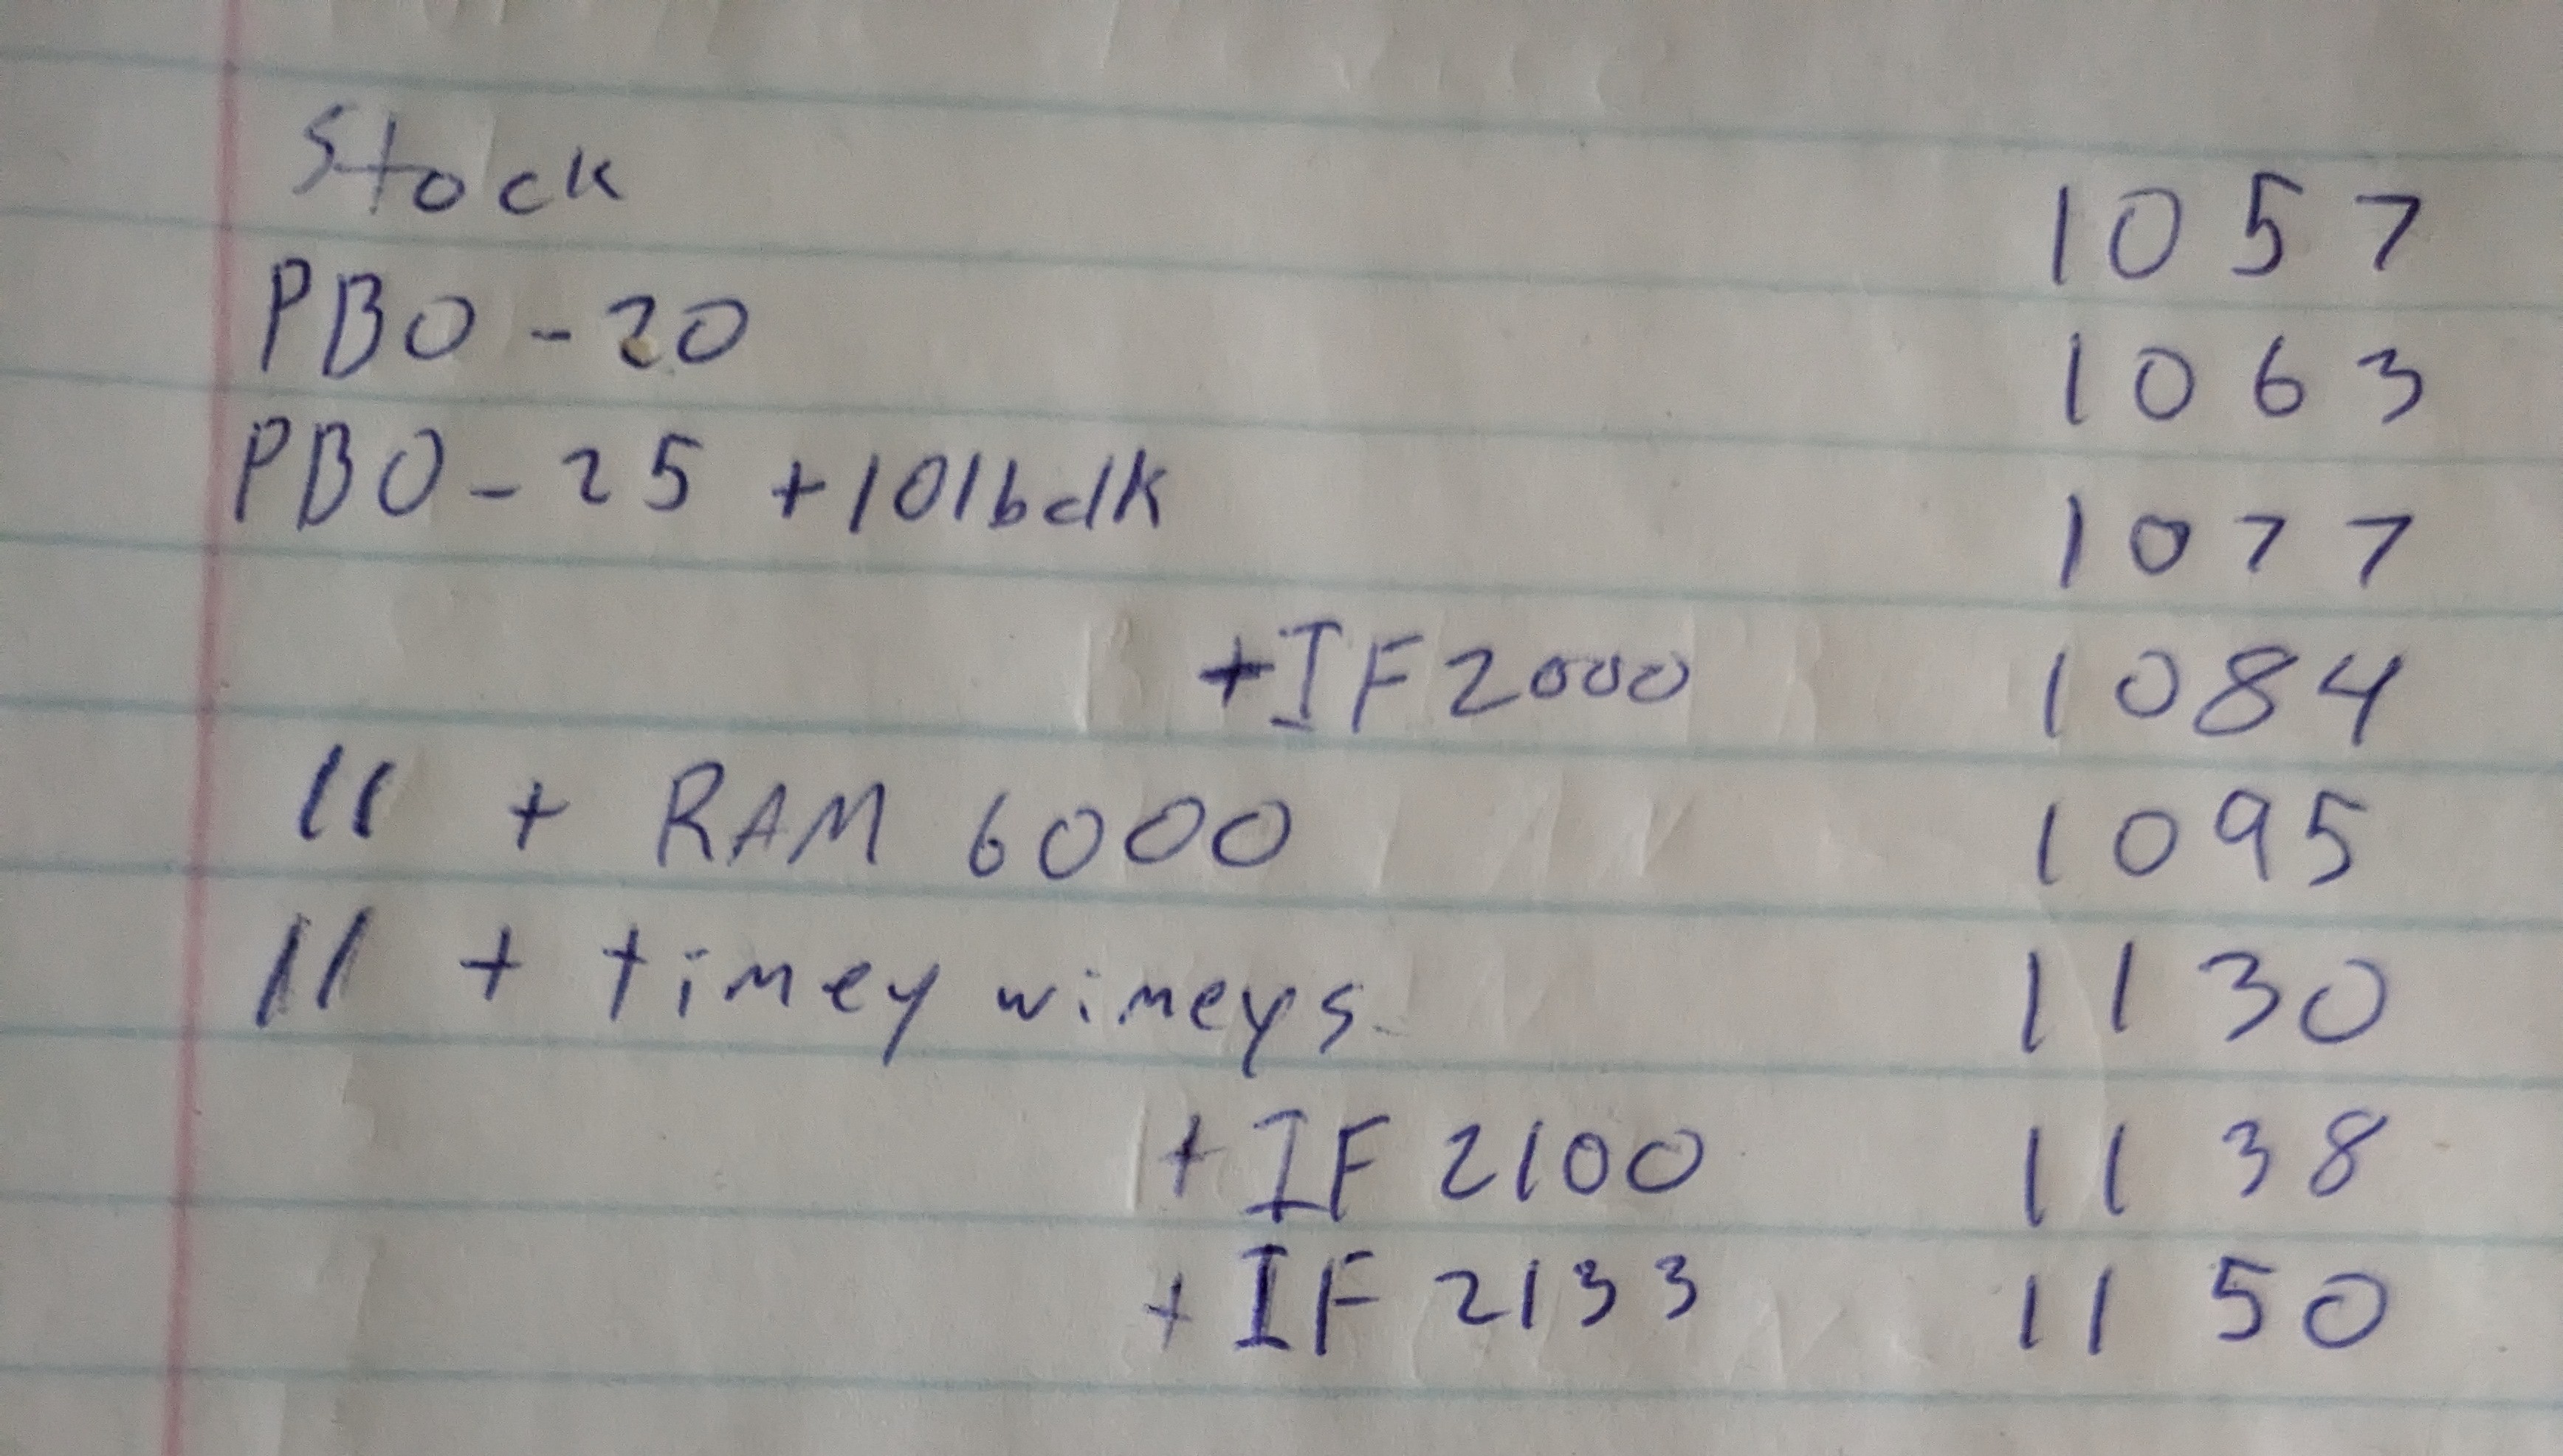 Stock 1057
PBO - 20 1063
PBO - 25 + 101bclk 1077
+ IF 2000 1084
" + RAM 6000 1095
" + timey wimeys 1130
+ IF 2100 1138
+ IF 2133 1150